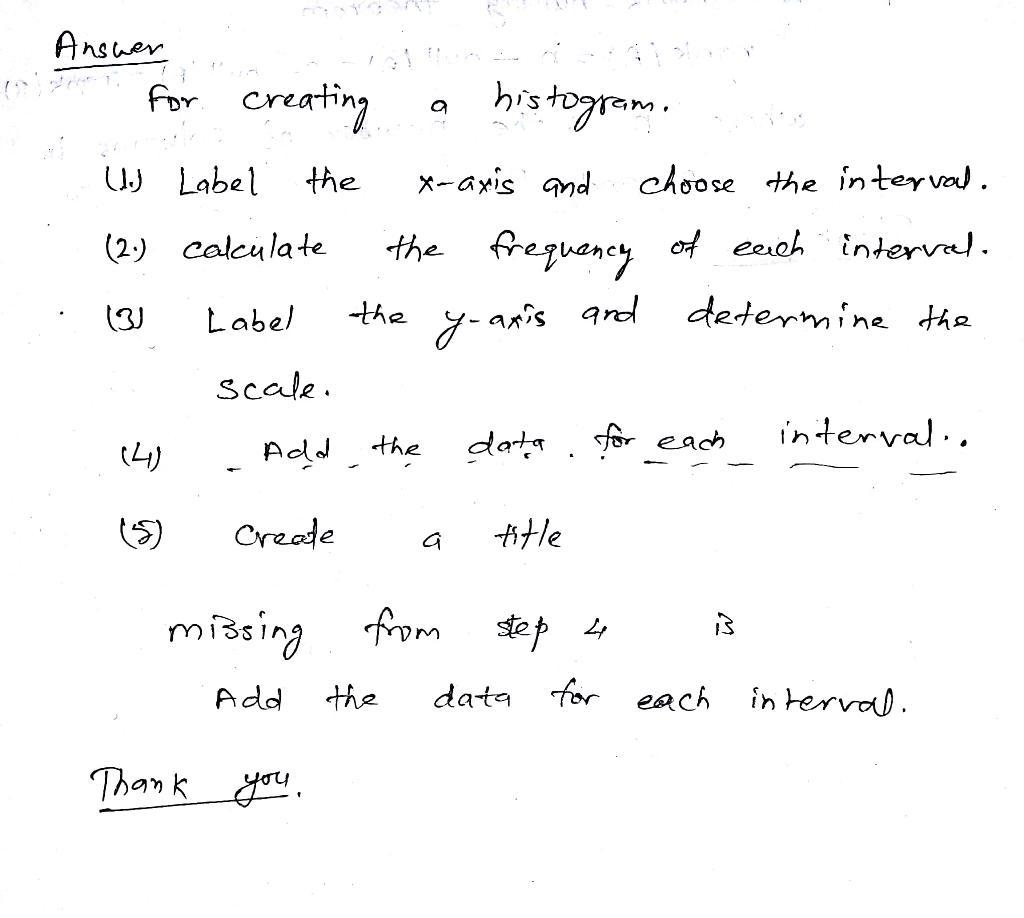 Answer
for creating a histogram.
(1.) Label the x-axis and choose the interval.
(2.) calculate the frequency of each interval.
(3) Label the y-axis and determine the
scale.
(4) Add the data for each interval.
(5) Create a title
missing from step 4 is
Add the data for each interval.
Thank you.